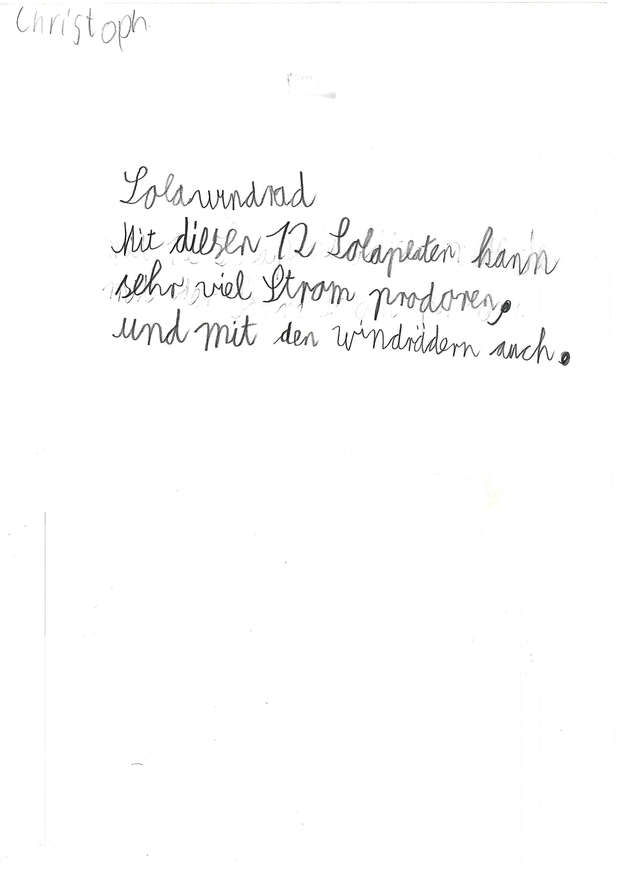 Christoph
Solawindrad
Mit diesen 12 Solaplaten kann
sehr viel Strom prodoren,
und mit den windrädern auch.